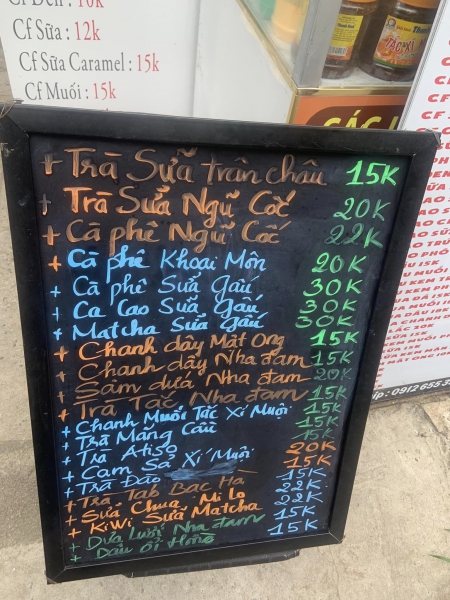 Cf Đen : 10k
Cf Sữa : 12k
Cf Sữa Caramel : 15k
Cf Muối : 15k
+ Trà Sữa trân châu 15K
+ Trà Sữa Ngũ Cốc 20K
+ Cà phê Ngũ Cốc 22K
+ Cà phê Khoai Môn 20K
+ Cà phê Sữa Gấu 30K
+ Ca Cao Sữa Gấu 30K
+ Matcha Sữa Gấu 30K
+ Chanh dây Mật Ong 15K
+ Chanh dây Nha đam 15K
+ Sâm dứa Nha đam 20K
+ Trà Tắc Nha đam 15K
+ Chanh Muối Tắc Xí Muội 15K
+ Trà Mãng Cầu 15K
+ Trà Atiso 15K
+ Cam Sả Xí Muội 20K
+ Trà Đào 15K
+ Trà Táo Bạc Hà 15K
+ Sữa Chua Mi Lo 22K
+ KiWi Sữa Matcha 22K
+ Dưa Lưới Nha đam 15K
+ Dâu Ổi Hồng 15K
TẮC XÍ
CÁC
0912 655